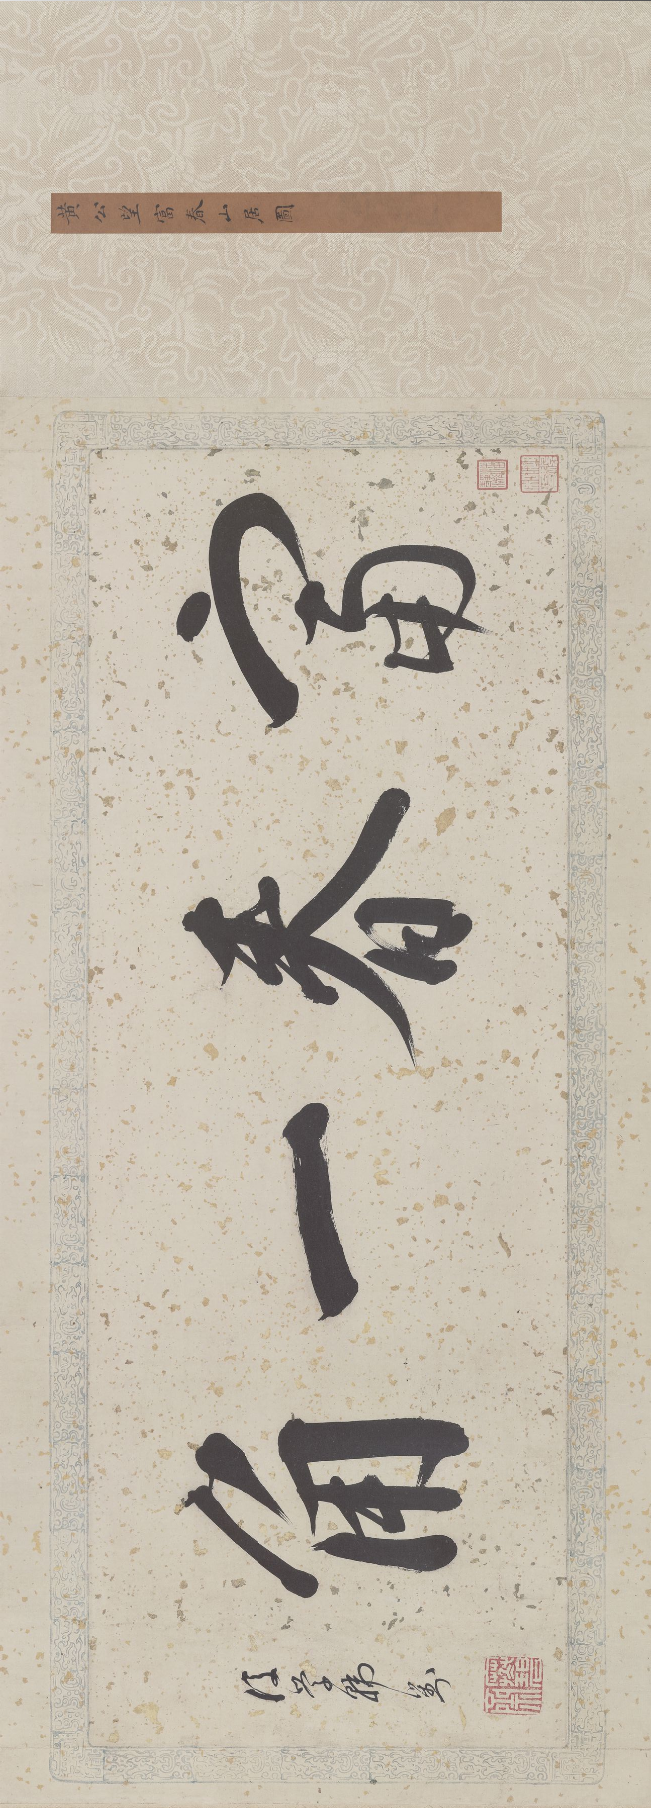 黃公望富春山居圖
富春一角
後學